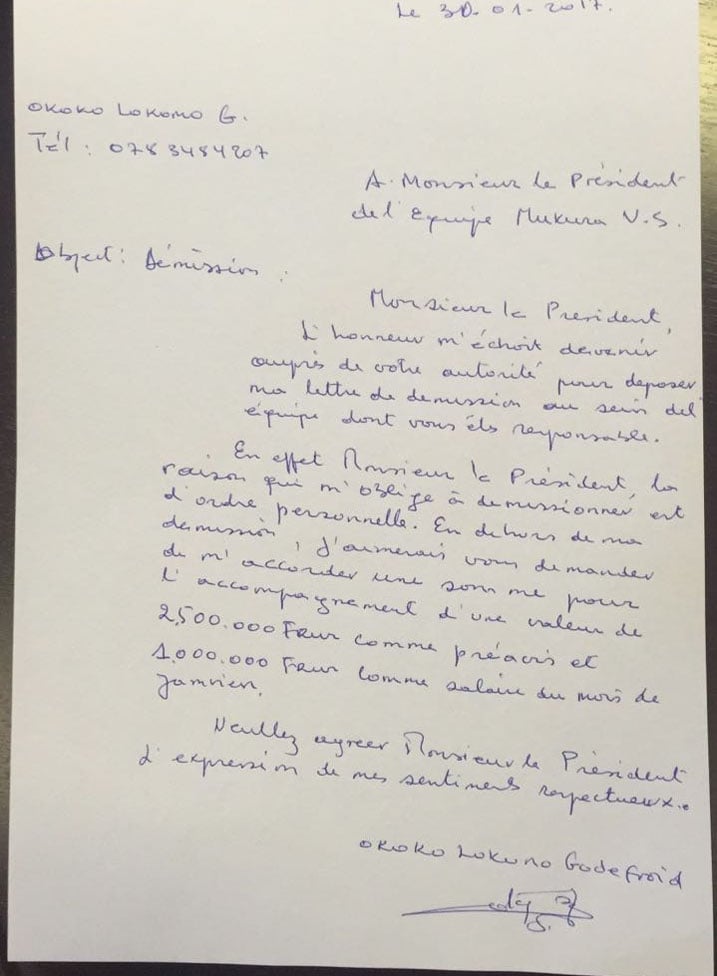 Le 30.01.2017.
OKOKO LOKOMO G.
Tél : 078 3484207
A Monsieur le Président
del'Equipe Mukura V.S.
Object : Démission :
Monsieur le President,
L'honneur m'échoit devenir
auprès de votre autorité pour deposer
ma lettre de demission au sein del'
équipe dont vous êts responsable.
En effet Monsieur le Président, la
raison qui m'oblige à demissionner est
d'ordre personnelle. En dehors de ma
demission, j'aimerais vous demander
de m'accorder une somme pour
l'accompagnement d'une valeur de
2,500.000 Frw comme préavis et
1,000.000 Frw comme salaire du mois de
Janvier.
Veullez agreer Monsieur le Président
l'expression de mes sentiments respectueux..
OKOKO LOKUMO Godefroid